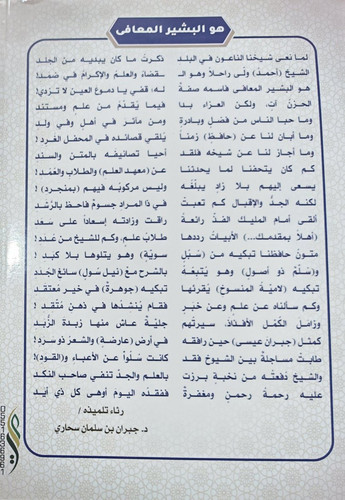 هو البشير المعافى
لما نعى شيخنا الناعون في البلد ذكرت ما كان يبديه من الجلد
الشيخ (أحمد) ولى راحلا وهو الـ ـقضاء والعلم والإكرام في صمد!
هو البشير المعافى قاسمه صفة له، قفي يا دموع العين لا تزدي!
الحزن آت، ولكن العزاء بدا فيما يقدم من علم ومستند
وما حبا الناس من فضل وبادرة ومن مآثر في أهل وفي ولد
وما أبان لنا عن (حافظ) زمناً يلقي قصائده في المحفل الغرد!
وما أجاز لنا عن شيخه فلقد أحيا تصانيفه بالمتن والسند
كم كان يتحفنا لما يحدثنا عن (معهد العلم) والطلاب والعمد!
يسعى إليهم بلا زاد يبلغه وليس مركوبه فيهم (بمنجرد)!
لكنه الجد والإقبال كم تعبت في ذا المراد جسوم فاحظ بالرشد
ألقى أمام المليك الفذ رائعة راقت وزادته إسعاداً على سعد
(أهلاً بمقدمك...) الأبيات رددها طلاب علم، وكم للشيخ من غدد!
متون حافظنا تبكيه من (سبل سوية) وهو يتلوها بلا كبد!
و(سلم ذو أصول) وهو يتبعه بالشرح مع (نيل سول) سائغ الجدد
تبكيه (لامية المنسوخ) يقرئها تبكيه (جوهرة) في خير معتقد
وكم سألناه عن علم وعن خبر فقام ينشدها في ذهن متقد!
وزامل الكمل الأفذاذ، سيرتهم جلية عاش منها زبدة الزبد
كمثل (جبران عيسى) حين رافقه في أرض (عارضة) والشعر ذو سرد!
طابت مساجلة بين الشيوخ فقد كانت سلواً عن الأعباء و(القود)!
والشيخ دفعته من نخبة برزت بالعلم والجد تنفي صاحب النكد
عليه رحمة رحمن ومغفرة ففقده اليوم أوهى كل ذي أيد
رثاء تلميذه /
د. جبران بن سلمان سحاري